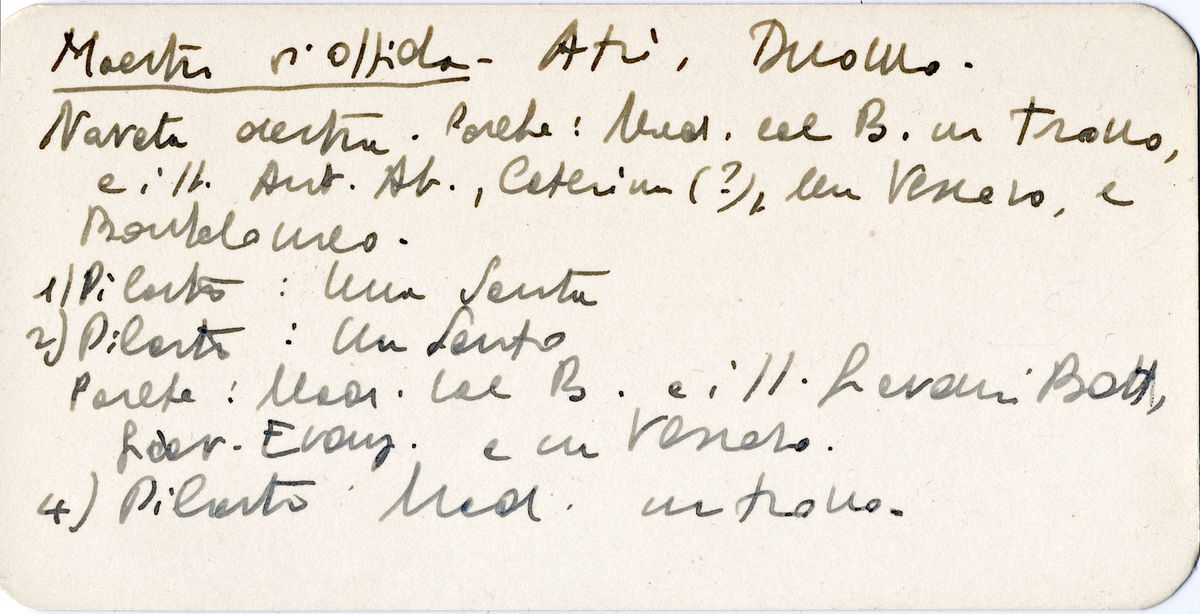 Maestro di Offida - Atri, Duomo.
Navata destra. Parete: Mad. col B. in trono,
e i SS. Ant. Ab., Caterina (?), un Vescovo, e
Bartolomeo.
1) Pilastro: Una Santa
2) Pilastro: Un Santo
Parete: Mad. col B. e i SS. Giovanni Batt,
Giov. Evang. e un Vescovo.
4) Pilastro Mad. in trono.